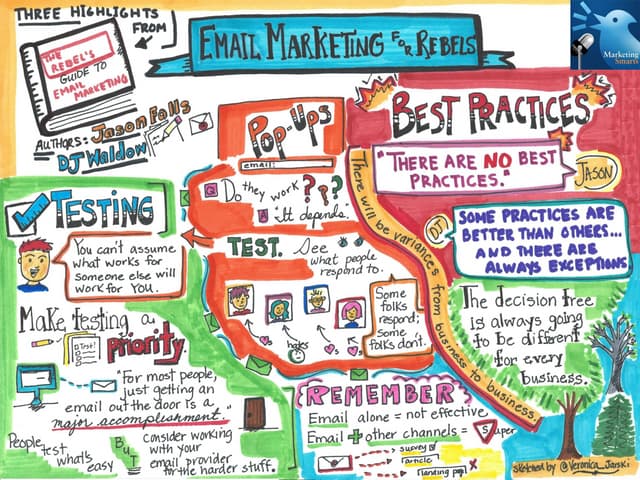 THREE HIGHLIGHTS
FROM
THE
REBEL'S
GUIDE TO
EMAIL MARKETING
AUTHORS: Jason Falls
DJ Waldow
EMAIL MARKETING FOR REBELS
Marketing
Smarts
TESTING
You can't assume
what works for
someone else will
work for YOU.
Make testing a
priority.
Test!
"For most people,
just getting an
email out the door is a
major accomplishment."
People test what's easy
BUT
consider working
with your
email provider
for the harder stuff.
POP-UPS
email:
Q Do they work???
A It depends.
TEST. See what people
respond to.
Some
folks
respond;
some
folks don't.
hates
There will be variances from business to business.
BEST PRACTICES
"THERE ARE NO BEST
PRACTICES."
JASON
DJ
SOME PRACTICES ARE
BETTER THAN OTHERS...
AND THERE ARE
ALWAYS EXCEPTIONS
The decision tree
is always going
to be different
for every
business.
REMEMBER
Email alone = not effective
Email + other channels = Super
survey
article
landing pg
sketched by @Veronica_Jarski